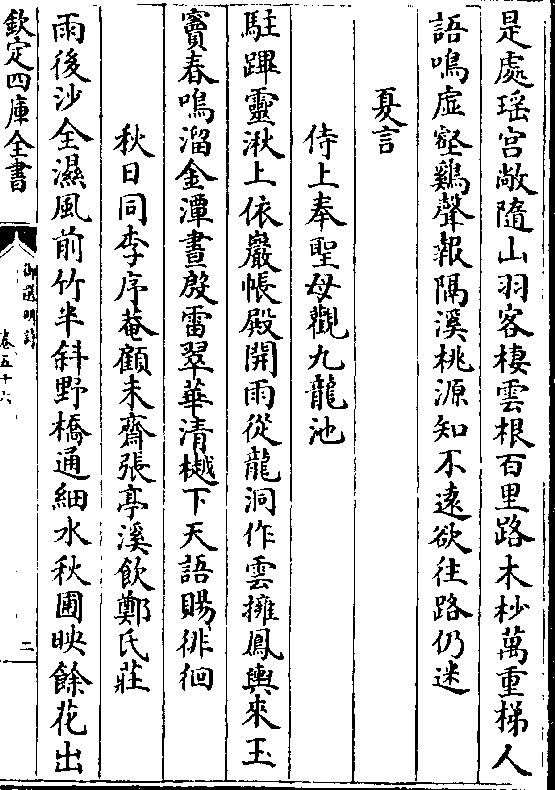 是處瑶宫敞隨山羽客棲雲根百里路木杪萬重梯人
語鳴虚壑鷄聲報隔溪桃源知不遠欲往路仍迷
夏言
侍上奉聖母觀九龍池
駐蹕靈湫上依巖帳殿開雨從龍洞作雲擁鳳輿來玉
竇春鳴溜金潭晝殷雷翠華清樾下天語賜徘徊
秋日同李序菴顧未齋張亭溪飲鄭氏莊
雨後沙全濕風前竹半斜野橋通細水秋圃映餘花出
欽定四庫全書
御選明詩
卷五十六
二